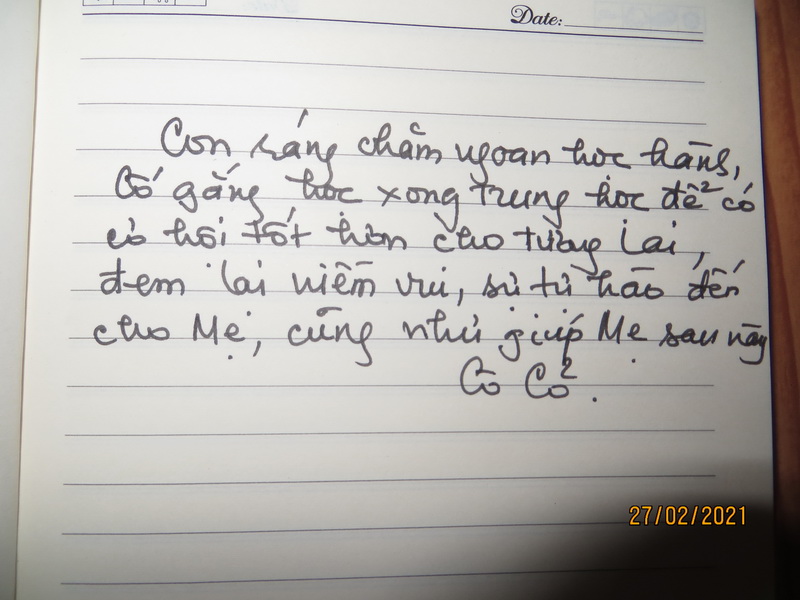 Date:
Con ráng chăm ngoan học hành,
Cố gắng học xong trung học để có
cơ hội tốt hơn cho tương lai,
đem lại niềm vui, sự tự hào đến
cho Mẹ, cũng như giúp Mẹ sau này
Cô Cơ².
27/02/2021